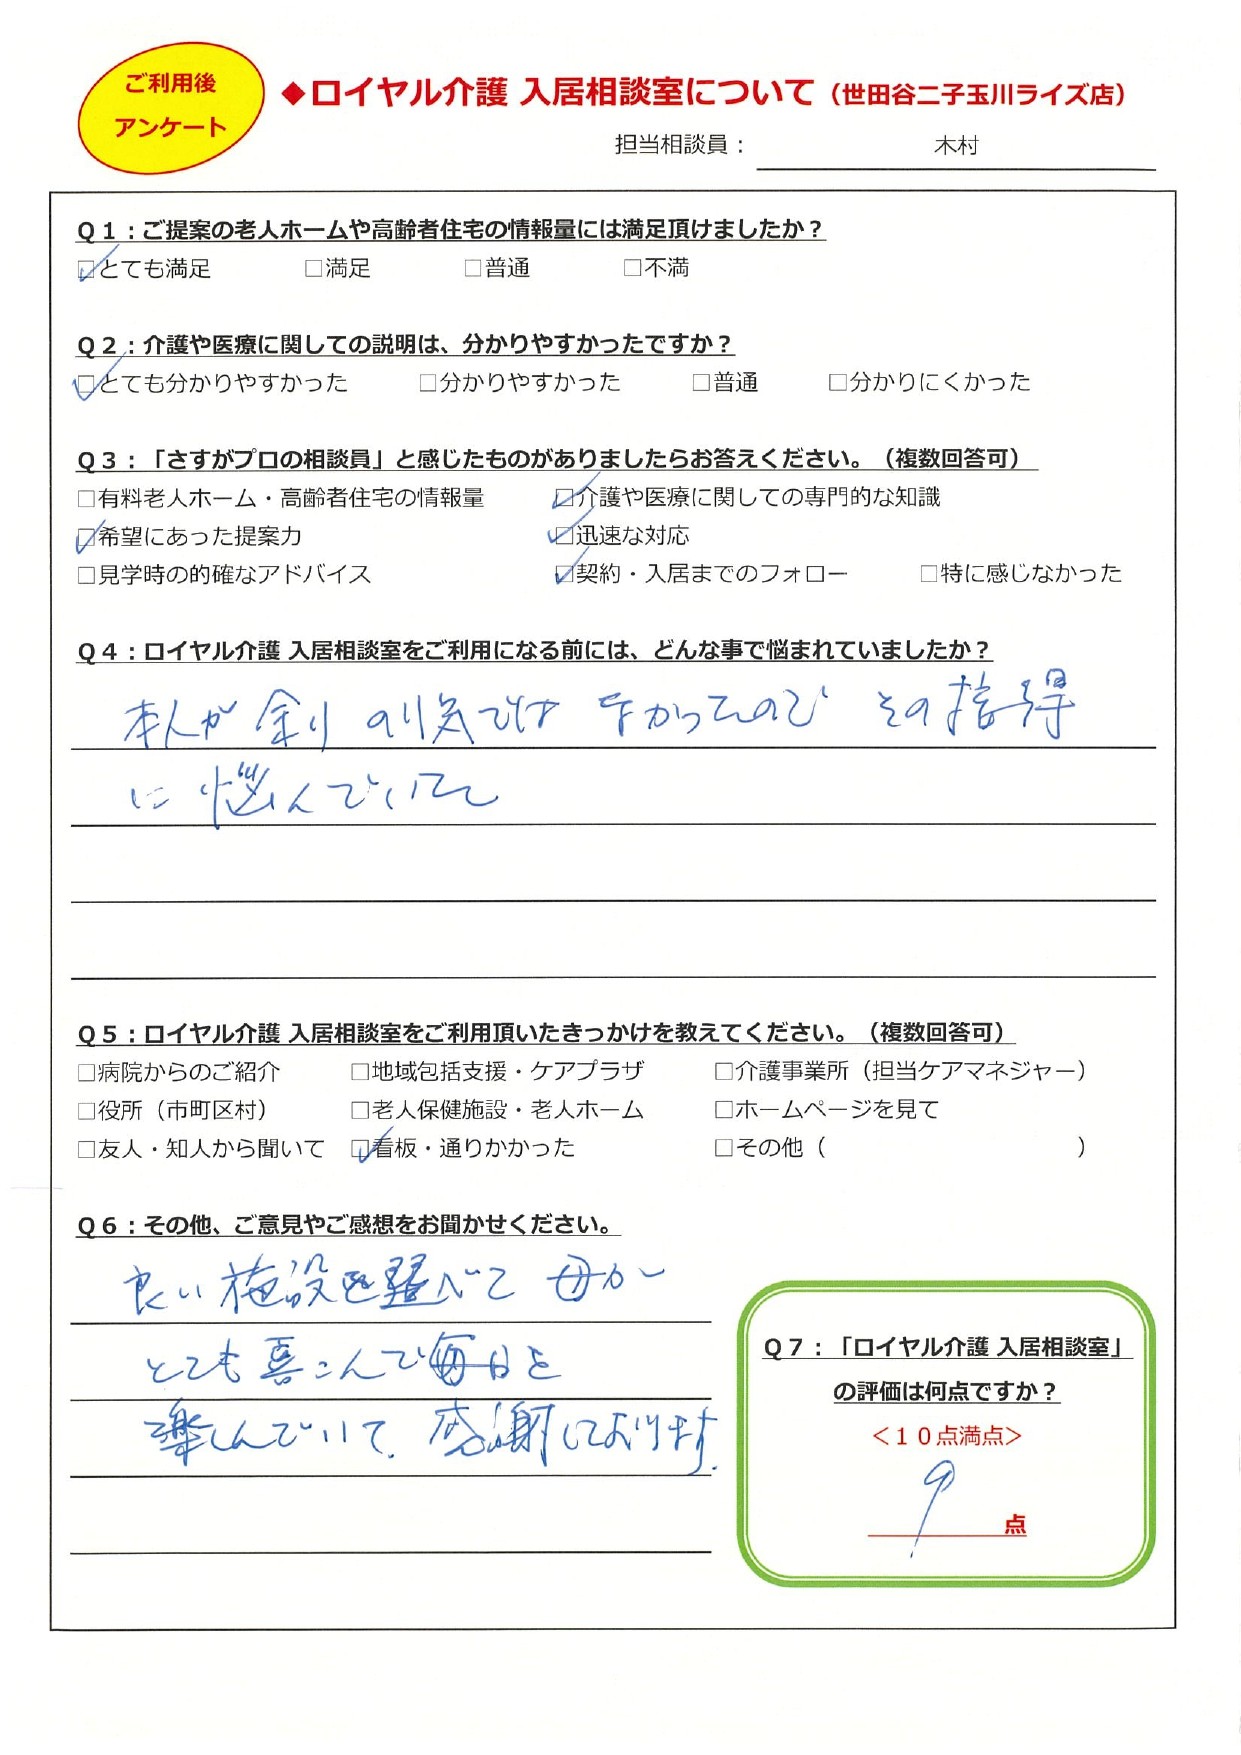 ご利用後
アンケート
◆ロイヤル介護 入居相談室について（世田谷二子玉川ライズ店）
担当相談員： 木村
Ｑ１：ご提案の老人ホームや高齢者住宅の情報量には満足頂けましたか？
☑とても満足 □満足 □普通 □不満
Ｑ２：介護や医療に関しての説明は、分かりやすかったですか？
☑とても分かりやすかった □分かりやすかった □普通 □分かりにくかった
Ｑ３：「さすがプロの相談員」と感じたものがありましたらお答えください。（複数回答可）
□有料老人ホーム・高齢者住宅の情報量 ☑介護や医療に関しての専門的な知識
☑希望にあった提案力 ☑迅速な対応
□見学時の的確なアドバイス ☑契約・入居までのフォロー □特に感じなかった
Ｑ４：ロイヤル介護 入居相談室をご利用になる前には、どんな事で悩まれていましたか？
本人が余り乗り気ではなかったので その説得
に悩んでいた
Ｑ５：ロイヤル介護 入居相談室をご利用頂いたきっかけを教えてください。（複数回答可）
□病院からのご紹介 □地域包括支援・ケアプラザ □介護事業所（担当ケアマネジャー）
□役所（市町区村） □老人保健施設・老人ホーム □ホームページを見て
□友人・知人から聞いて ☑看板・通りかかった □その他（ ）
Ｑ６：その他、ご意見やご感想をお聞かせください。
良い施設を選べて 母が
とても喜こんで毎日を
楽しんでいて、感謝しております.
Ｑ７：「ロイヤル介護 入居相談室」
の評価は何点ですか？
＜１０点満点＞
9 点